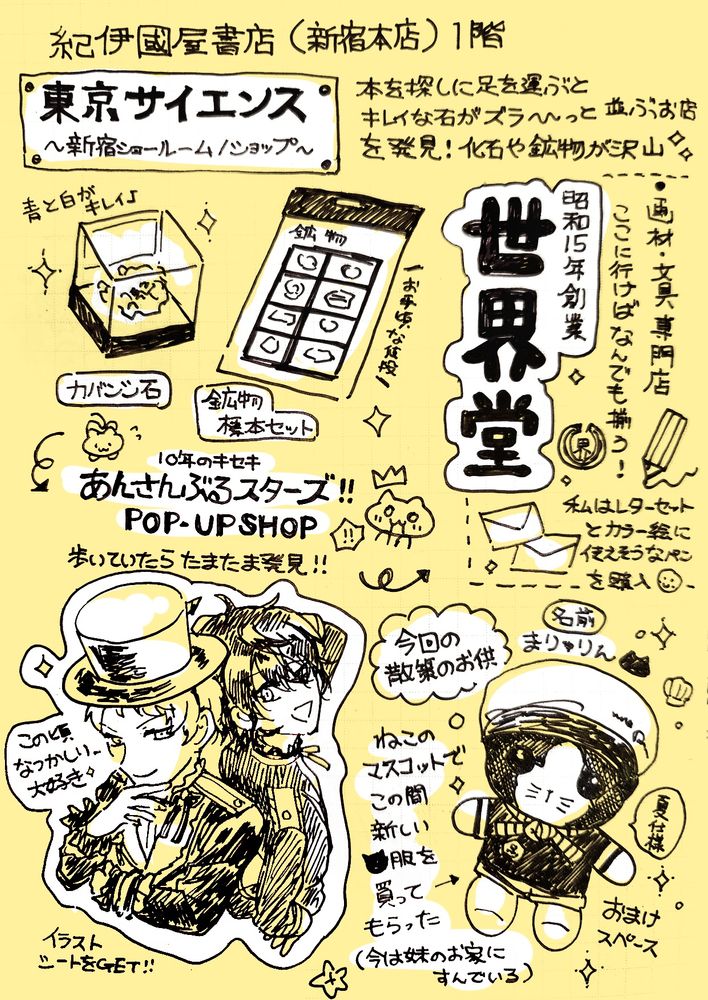 紀伊國屋書店（新宿本店）1階
東京サイエンス
～新宿ショールーム/ショップ～
本を探しに足を運ぶと
キレイな石がズラ〜〜っと並ぶお店
を発見！化石や鉱物が沢山
青と白が
キレイ♪
カバンシ石
鉱物
お手頃な値段
鉱物
標本セット
世界堂
昭和15年創業
・画材・文具専門店
ここに行けばなんでも揃う！
界
私はレターセット
とカラー絵に
使えそうなペン
を購入
10年のキセキ
あんさんぶるスターズ!!
POP-UP SHOP
!!
歩いていたらたまたま発見!!
この頃
なつかしい〜
大好き
イラスト
シートをGET!!
今回の
散策のお供
名前
まりゃりん
ねこの
マスコットで
この間
新しい
服を
買って
もらった
(今は妹のお家に
すんでいる)
夏仕様
おまけ
スペース